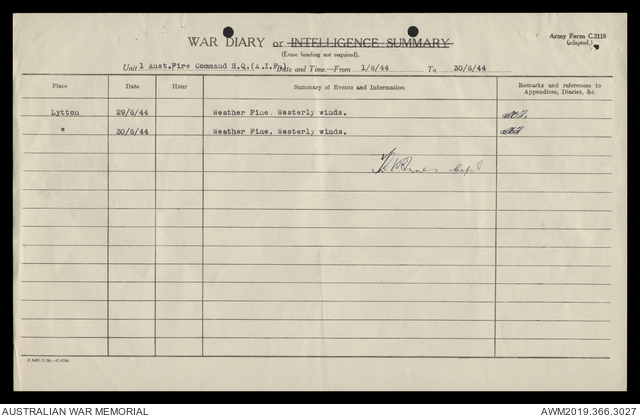 WAR DIARY or INTELLIGENCE SUMMARY
Army Form C.2118
(adapted.)
(Erase heading not required).
Unit 1 Aust.Fire Command H.Q.(A.I.F.) Date and Time.—From 1/6/44 To 30/6/44
Place Date Hour Summary of Events and Information Remarks and references to Appendices, Diaries, &c.
Lytton 29/6/44 Weather Fine. Westerly winds.
" 30/6/44 Weather Fine. Westerly winds.
Capt
AUSTRALIAN WAR MEMORIAL AWM2019.366.3027